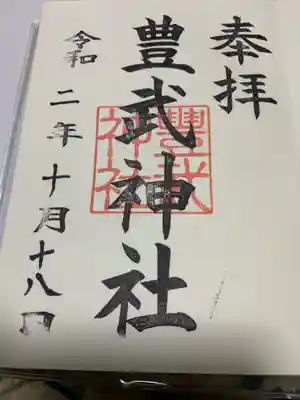 奉拝
豊武神社
豐武神社
令和二年十月十八日